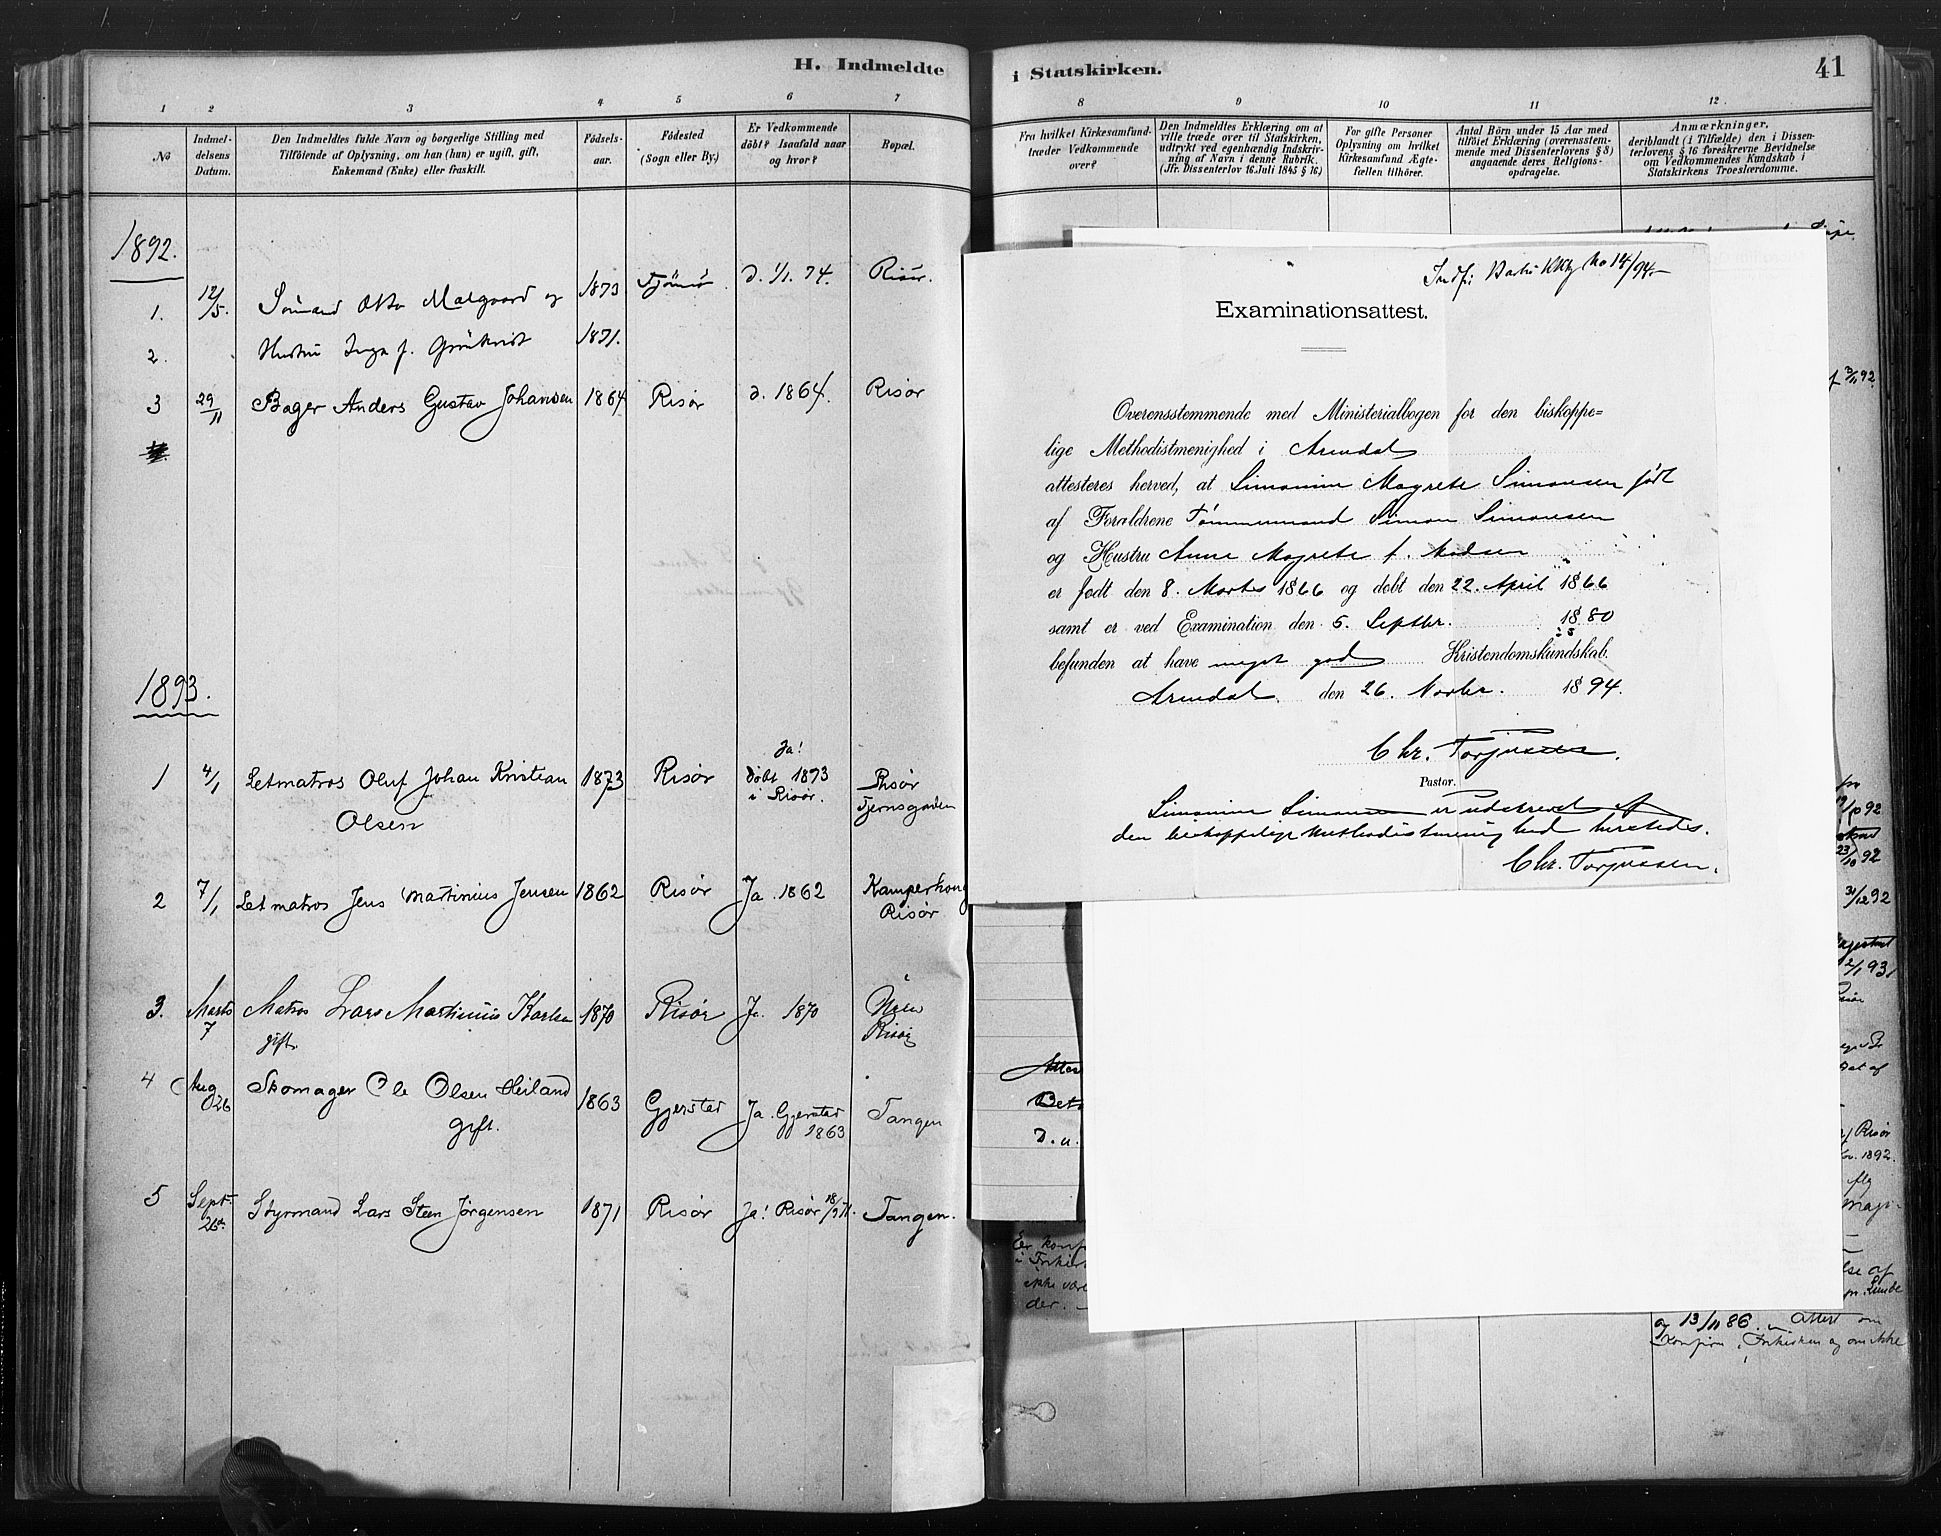 H. Indmeldte i Statskirken. 41
1 2 3 4 5 6 7 8 9 10 11 12
No
Indmel-
delsens
Datum.
Den Indmeldtes fulde Navn og borgerlige Stilling med
Tilføiende af Oplysning, om han (hun) er ugift, gift,
Enkemand (Enke) eller fraskilt.
Fødsels-
aar.
Fødested
(Sogn eller By.)
Er Vedkommende
døbt? Isaafald naar
og hvor?
Bopæl.
Fra hvilket Kirkesamfund
træder Vedkommende
over?
Den Indmeldtes Erklæring om at
ville træde over til Statskirken,
udtrykt ved egenhændig Indskriv-
ning af Navn i denne Rubrik.
(Jfr. Dissenterlov 16. Juli 1845 § 16)
For gifte Personer
Oplysning om hvilket
Kirkesamfund Ægte-
fællen tilhører.
Antal Børn under 15 Aar med
tilføiet Erklæring (overensstem-
mende med Dissenterlovens § 8)
angaaende deres Religions-
opdragelse.
Anmærkninger,
deriblandt (i Tilfælde) den i Dissen-
terlovens § 16 foreskrevne Bevidnelse
om Vedkommendes Kundskab i
Statskirkens Troeslærdomme.
1892.
1. 12/5. Sømand Otto Malgaard og 1873 Tjømø d. 1/1. 74. Risør.
2. Hustru Inga f. 1871.
3 29/11 Bager Anders Gustav Johansen 1864 Risør d. 1864. Risør
1893.
1 4/1 Letmatros Oluf Johan Kristian 1873 Risør Ja! døbt 1873 Risør
Olsen i Risør. Tjernsgaden
2 7/1 Letmatros Jens Martinius Jensen 1862 Risør Ja 1862 Kamperhoug
Risør
3. Marts 7 Matros Lars Martinius Karlsen 1870 Risør Ja. 1870
gift. Risør
4 Aug 26 Skomager Ole Olsen Heiland 1863 Gjerstad Ja. Gjerstad Tangen
gift. 1863
5 Sept. Styrmand Lars Steen Jørgensen 1871 Risør Ja! Risør 18/9 71. Tangen.
No 14/94
Examinationsattest.
Overensstemmende med Ministerialbogen for den biskoppe=
lige Methodistmenighed i Arendal
attesteres herved, at Simonine Magrete Simonsen født
af Forældrene Tømmermand Simon Simonsen
og Hustru Anne Magrete f. Madsen
er født den 8. Marts 1866 og døbt den 22. April 1866
samt er ved Examination den 5. Septbr. 1880
befunden at have meget god Kristendomskundskab.
Arendal den 26. Novbr. 1894.
Chr. Torjussen.
Pastor.
Simonine Simonsen er udskrevet af
den biskoppelige Methodistmenighed hersteds.
Chr. Torjussen.
3/11 92
92
23/10 92
31/12 92
93
Risør
1892.
D. u.
Er konf
i Frikirk
ikke vær
der.
og 13/11 86. Attest om
Konfirm. i Frikirken og om ikke